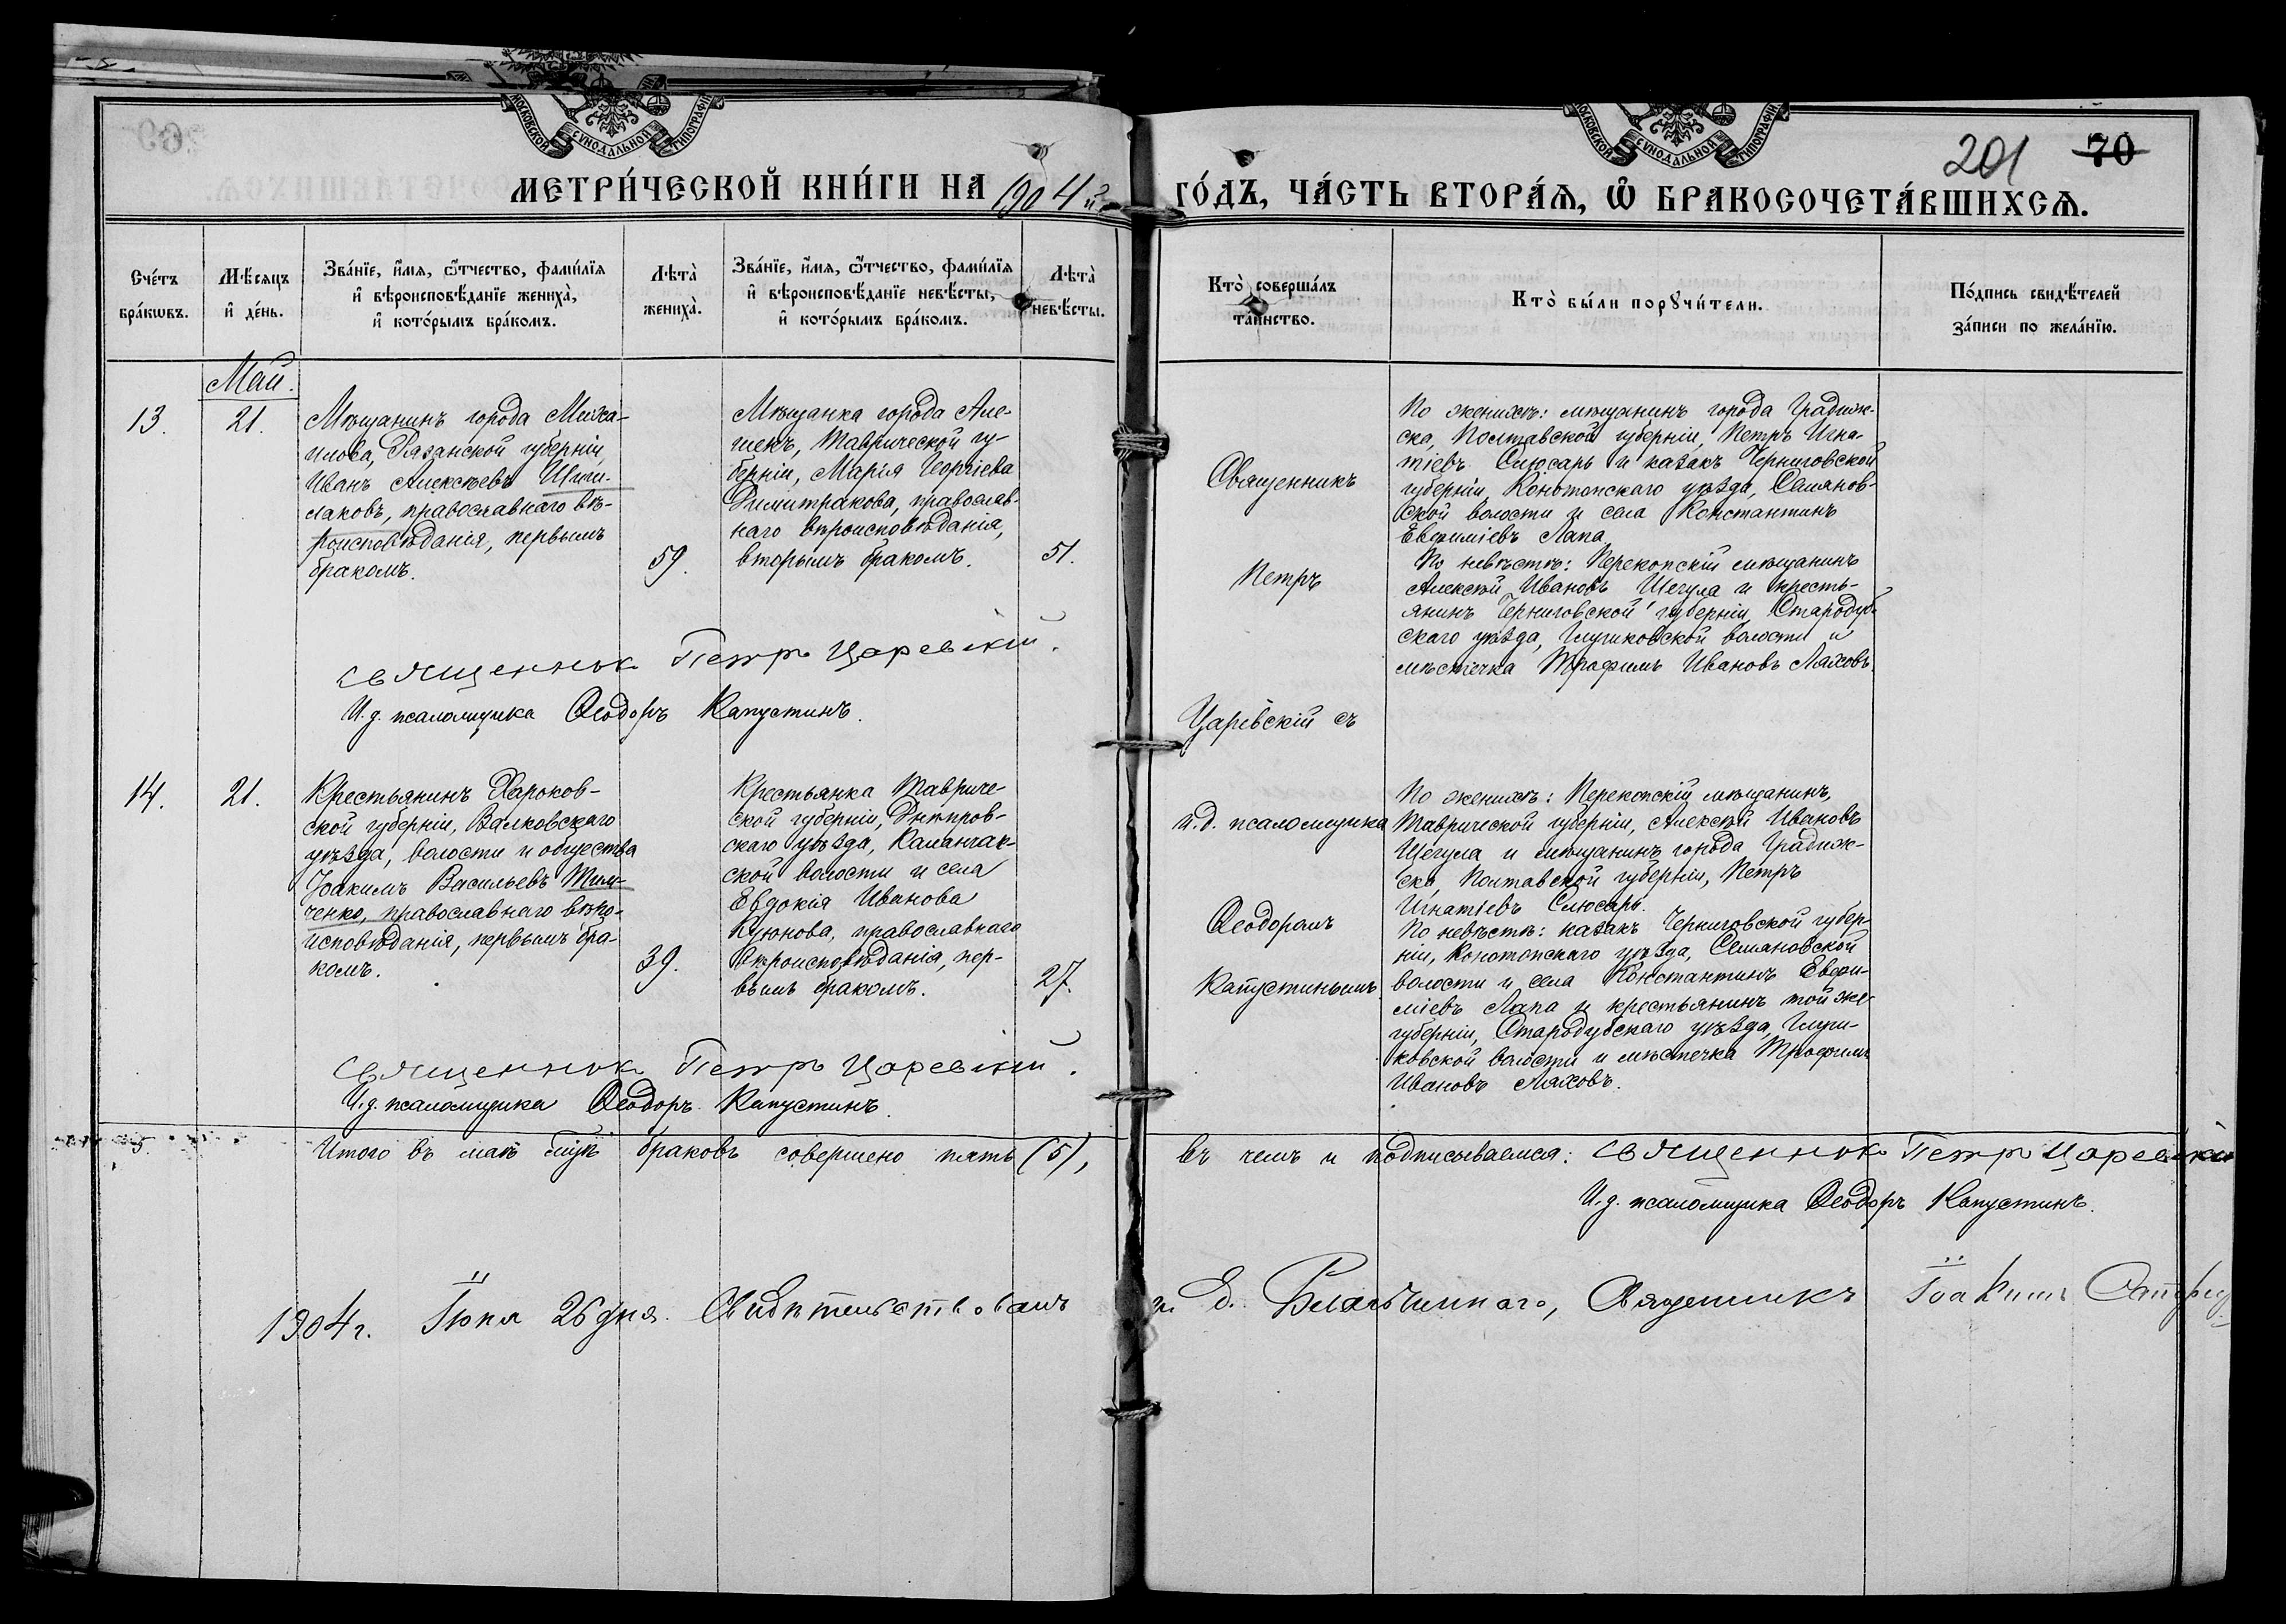 МОСКОВСКОЙ СУНОДАЛЬНОЙ ТИПОГРАФІИ
МОСКОВСКОЙ СУНОДАЛЬНОЙ ТИПОГРАФІИ
201 70
МЕТРИ́ЧЕСКОЙ КНИ́ГИ НА 1904й ГО́ДЪ, ЧА́СТЬ ВТОРА́Ѧ, Ѿ БРАКОСОЧЕТА́ВШИХСѦ.
Сче́тъ
бра́кѡвъ.
Мѣ́сѧцъ
и҆ де́нь.
Зва́нїе, и҆́мѧ, ѻ҆́тчество, фами́лїѧ
и҆ вѣроисповѣ́данїе жениха̀,
и҆ кото́рымъ бра́комъ.
Лѣта̀
жениха̀.
Зва́нїе, и҆́мѧ, ѻ҆́тчество, фами́лїѧ
и҆ вѣроисповѣ́данїе невѣ́сты,
и҆ кото́рымъ бра́комъ.
Лѣта̀
невѣ́сты.
Кто̀ соверша́лъ
та́инство.
Кто̀ бы́ли порꙋчи́тели.
По́дпись свидѣ́телей
за́писи по жела́нїю.
Май.
13.
21.
Мѣщанинъ города Миха-
йлова, Рязанской губерніи
Иванъ Алексѣевъ Шти-
лаковъ, православнаго вѣ-
роисповѣданія, первымъ
бракомъ.
59.
Мѣщанка города Але-
шекъ, Таврической гу-
берніи, Марія Георгіева
Димитракова, православ-
наго вѣроисповѣданія,
вторымъ бракомъ.
51.
Священникъ
Петръ
Царевскій съ
По женихѣ: мѣщанинъ города Градиж-
ска, Полтавской губерніи, Петръ Игна-
тіевъ Слюсарь и казакъ Черниговской
губерніи, Конотопскаго уѣзда, Семянов-
ской волости и села Константинъ
Евфиміевъ Лапа
По невѣстѣ: Перекопскій мѣщанинъ
Алексѣй Ивановъ Щегула и кресть-
янинъ Черниговской губерніи, Стародуб-
скаго уѣзда, волости и
мѣстечка Трофимъ Ивановъ Ляховъ.
священник Петръ Царевскій.
И. д. псаломщика Ѳеодоръ Капустинъ.
14.
21.
Крестьянинъ Харьков-
ской губерніи, Валковскаго
уѣзда, волости и общества
Іоакимъ Васильевъ Тим-
ченко, православнаго вѣро-
исповѣданія, первымъ бра-
комъ.
39.
Крестьянка Тавриче-
ской губерніи, Днѣпров-
скаго уѣзда, Каланчак-
ской волости и села
Евдокія Иванова
православнаго
вѣроисповѣданія, пер-
вымъ бракомъ.
27.
и. д. псаломщика
Ѳеодоромъ
Капустинымъ
По женихѣ: Перекопскій мѣщанинъ,
Таврической губерніи, Алексѣй Ивановъ
Щегула и мѣщанинъ города Градиж-
ска, Полтавской губерніи, Петръ
Игнатіевъ Слюсарь.
По невѣстѣ: казакъ Черниговской губер-
ніи, Конотопскаго уѣзда, Семяновской
волости и села Константинъ Евфи-
міевъ Лапа и крестьянинъ той же
губерніи, Стародубскаго уѣзда,
волости и мѣстечка Трофимъ
Ивановъ Ляховъ.
священник Петръ Царевскій.
И. д. псаломщика Ѳеодоръ Капустинъ.
5. Итого въ маѣ мцѣ браковъ совершено пять (5), въ чемъ и подписываемся: священник Петръ Царевскій
И. д. псаломщика Ѳеодоръ Капустинъ.
1904 г. Іюня 26 дня. Свидѣтельствовалъ и. д. Благочиннаго, Священникъ Іоакимъ